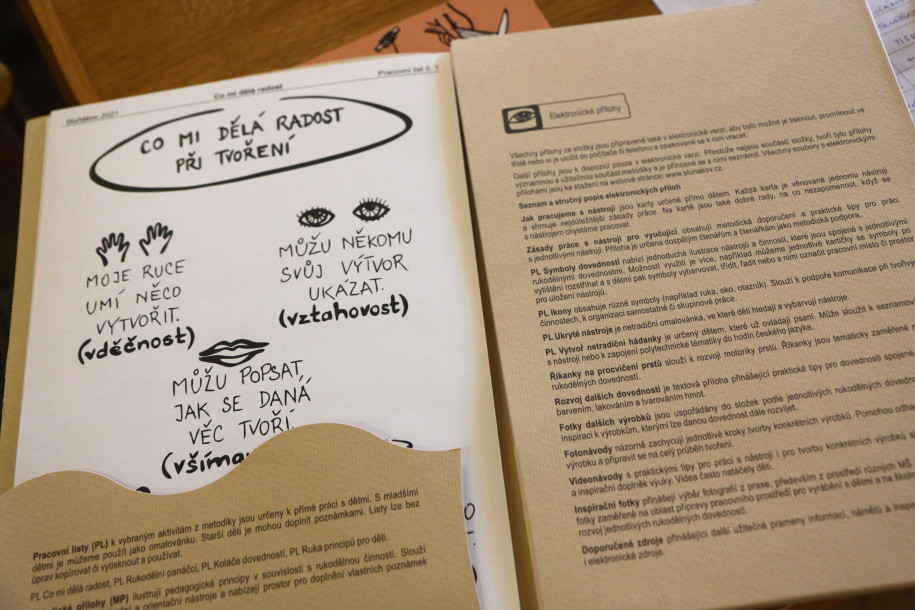 Sluňákov 2021
Co mi dělá radost
Pracovní list č. 1
CO MI DĚLÁ RADOST
PŘI TVOŘENÍ
MOJE RUCE
UMÍ NĚCO
VYTVOŘIT.
(vděčnost)
MŮŽU NĚKOMU
SVŮJ VÝTVOR
UKÁZAT.
(vztahovost)
MŮŽU POPSAT,
JAK SE DANÁ
VĚC TVOŘÍ.
Pracovní listy (PL) k vybraným aktivitám z metodiky jsou určeny k přímé práci s dětmi. S mladšími
dětmi je můžeme použít jako omalovánku. Starší děti je mohou doplnit poznámkami. Listy lze bez
úprav kopírovat či vytisknout a používat.
PL Co mi dělá radost, PL Rukodělní panáčci, PL Koláče dovedností, PL Ruka principů pro děti.
přílohy (MP) ilustrují pedagogické principy v souvislosti s rukodělnou činností. Slouží
a orientační nástroje a nabízejí prostor pro doplnění vlastních poznámek
Elektronické přílohy
Všechny přílohy ze složky jsou připravené také v elektronické verzi, aby bylo možné je tisknout, promítnout ve
třídě nebo si je uložit do počítače či telefonu a opakovaně se k nim vracet.
Další přílohy jsou k dispozici pouze v elektronické verzi. Přestože nejsou součástí složky, tvoří tyto přílohy
významnou a užitečnou součást metodiky a je přínosné se s nimi seznámit. Všechny soubory s elektronickými
přílohami jsou ke stažení na webové stránce: www.slunakov.cz.
Seznam a stručný popis elektronických příloh
Jak pracujeme s nástroji jsou karty určené přímo dětem. Každá karta je věnovaná jednomu nástroji
a shrnuje nejdůležitější zásady práce. Na kartě jsou také dobré rady, na co nezapomenout, když se
s nástrojem chystáme pracovat.
Zásady práce s nástroji pro vyučující obsahují metodická doporučení a praktické tipy pro práci
s jednotlivými nástroji. Příloha je určena dospělým čtenářům a čtenářkám jako metodická podpora.
PL Symboly dovedností nabízí jednoduché ilustrace nástrojů a činností, které jsou spojené s jednotlivými
rukodělnými dovednostmi. Možností využití je více, například můžeme jednotlivé kartičky se symboly po
vytištění rozstříhat a s dětmi pak symboly vybarvovat, třídit, řadit nebo s nimi označit pracovní místo či prostor
pro uložení nástrojů.
PL Ikony obsahuje různé symboly (například ruka, oko, otazník). Slouží k podpoře komunikace při tvořivých
činnostech, k organizaci samostatné či skupinové práce.
PL Ukryté nástroje je netradiční omalovánka, ve které děti hledají a vybarvují nástroje.
PL Vytvoř netradiční hádanky je určený dětem, které už ovládají psaní. Může sloužit k seznamování
s nástroji nebo k zapojení polytechnické tématiky do hodin českého jazyka.
Říkanky na procvičení prstů slouží k rozvoji motoriky prstů. Říkanky jsou tematicky zaměřené
rukodělných dovedností.
Rozvoj dalších dovedností je textová příloha přinášející praktické tipy pro dovednosti spojené
barvením, lakováním a tvarováním hmot.
Fotky dalších výrobků jsou uspořádány do složek podle jednotlivých rukodělných dovedností
inspiraci k výrobkům, kterými lze danou dovednost dále rozvíjet.
Fotonávody názorně zachycují jednotlivé kroky tvorby konkrétních výrobků. Pomohou
výrobku a připravit se na celý průběh tvoření.
Videonávody s praktickými tipy pro práci s nástroji i pro tvorbu konkrétních výrobků
a inspirační doplněk výuky. Videa často natáčely děti.
Inspirační fotky přinášejí výběr fotografií z praxe, především z prostředí různých MŠ
fotky zaměřené na oblast přípravy pracovního prostředí pro vyrábění s dětmi a na
rozvoj jednotlivých rukodělných dovedností.
Doporučené zdroje přinášející další užitečné prameny informací, námětů a
i elektronické zdroje.